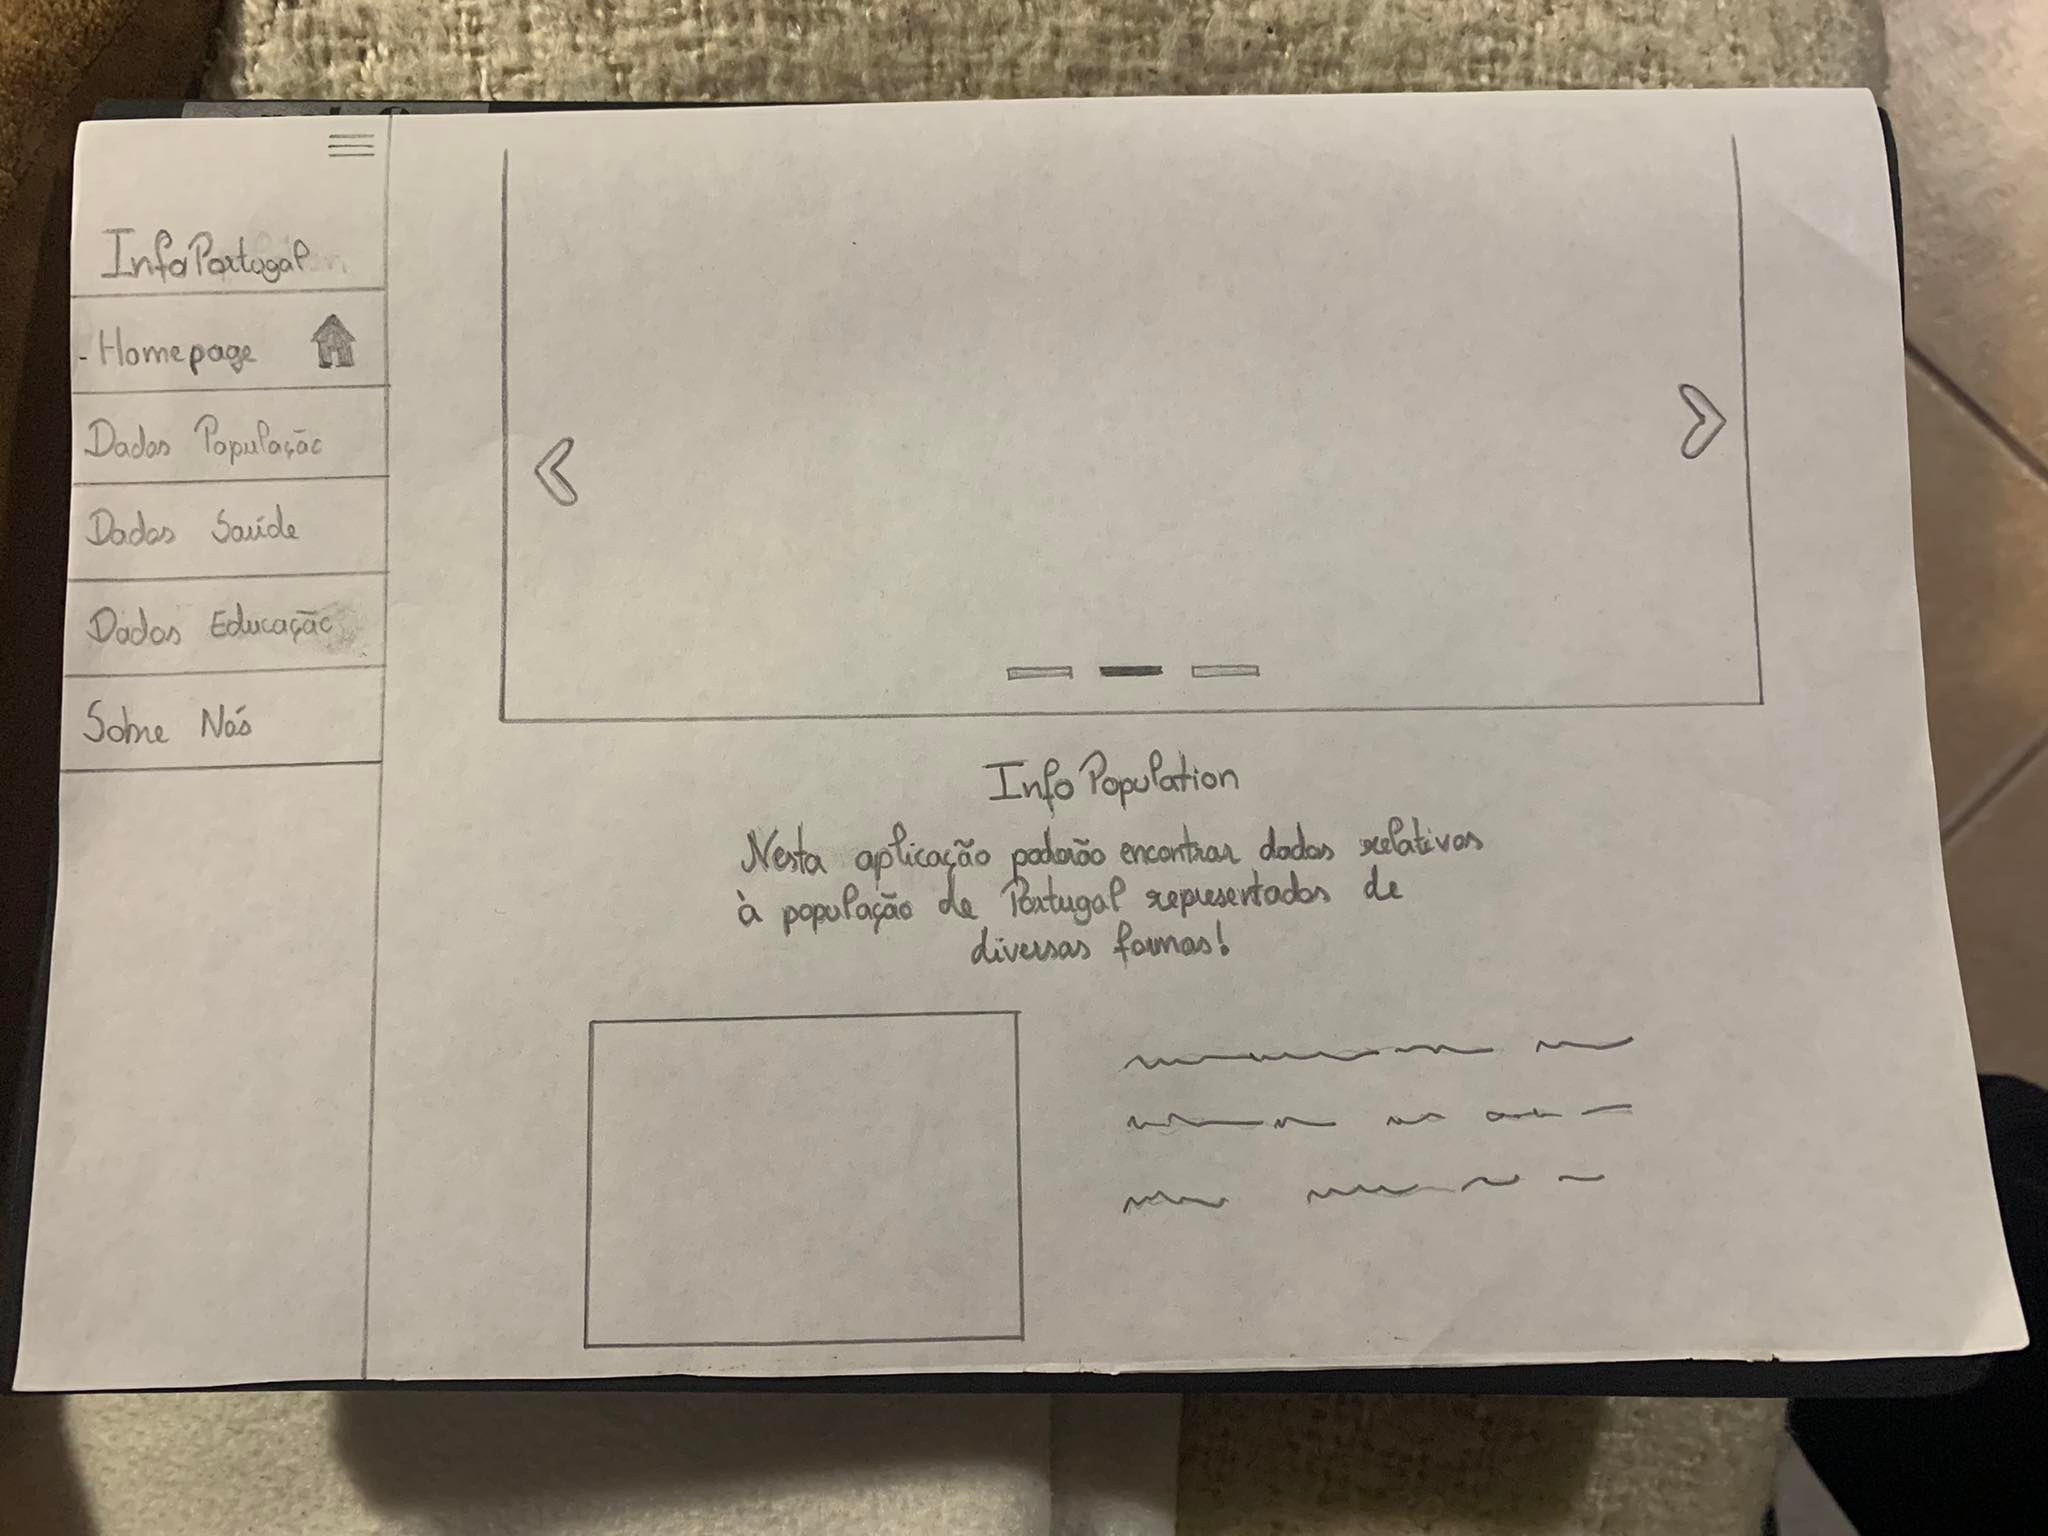 InfoPortugal
- Homepage
Dados População
Dados Saúde
Dados Educação
Sobre Nós
InfoPopulation
Nesta aplicação poderão encontrar dados relativos
à população de Portugal representados de
diversas formas!